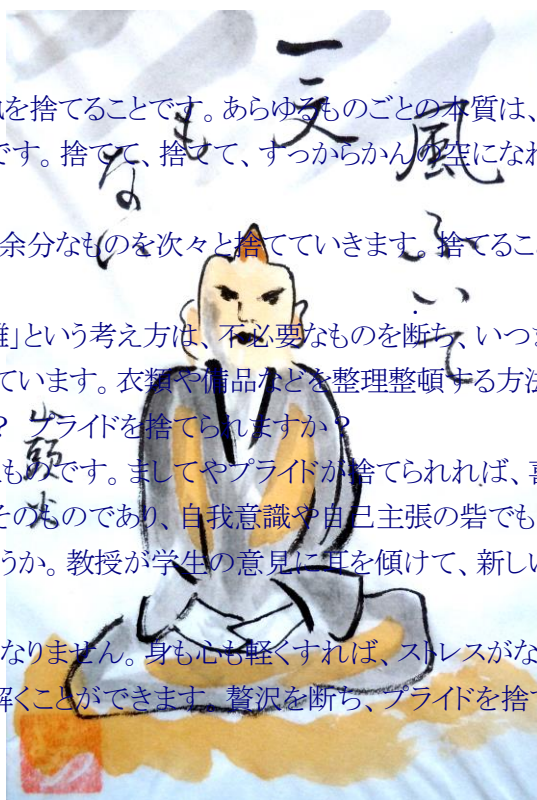 風ふいて
一文
もない
山頭火
を捨てることです。あらゆるものごとの本質は、
です。捨てて、捨てて、すっからかんの空になれ
余分なものを次々と捨てていきます。捨てるこ
離」という考え方は、不必要なものを断ち、いつ
ています。衣類や備品などを整理整頓する方法
？ プライドを捨てられますか？
ものです。ましてやプライドが捨てられれば、
そのものであり、自我意識や自己主張の砦でも
うか。教授が学生の意見に耳を傾けて、新しい
なりません。身も心も軽くすれば、ストレスがな
解くことができます。贅沢を断ち、プライドを捨て